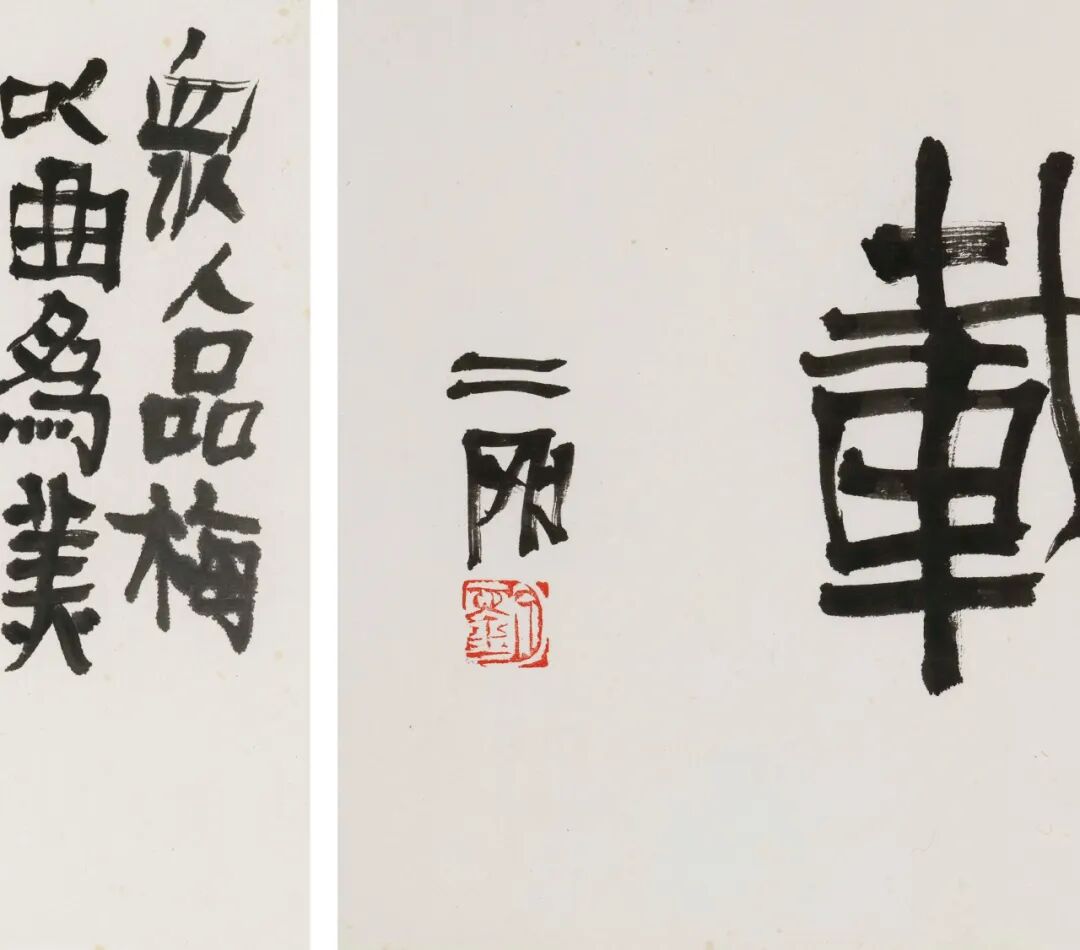 衆人品梅
以曲為美
載
二剛
劉